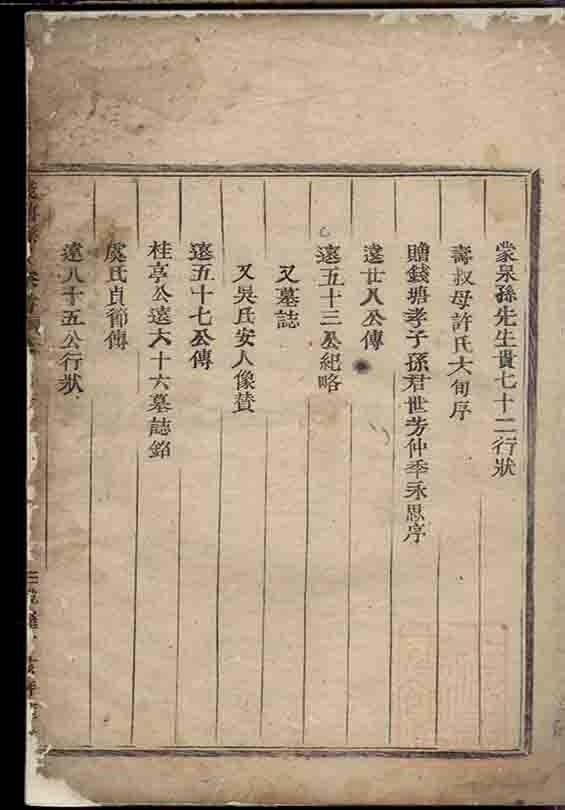 蒙泉孫先生貫七十二行狀
壽叔母許氏大旬序
贈錢塘孝子孫君世芳仲季永思序
遠廿八公傳
遠五十三公紀略
又墓誌
又吳氏安人像賛
遠五十七公傳
桂亭公遠六十六墓誌銘
虞氏貞節傳
遠八十五公行狀